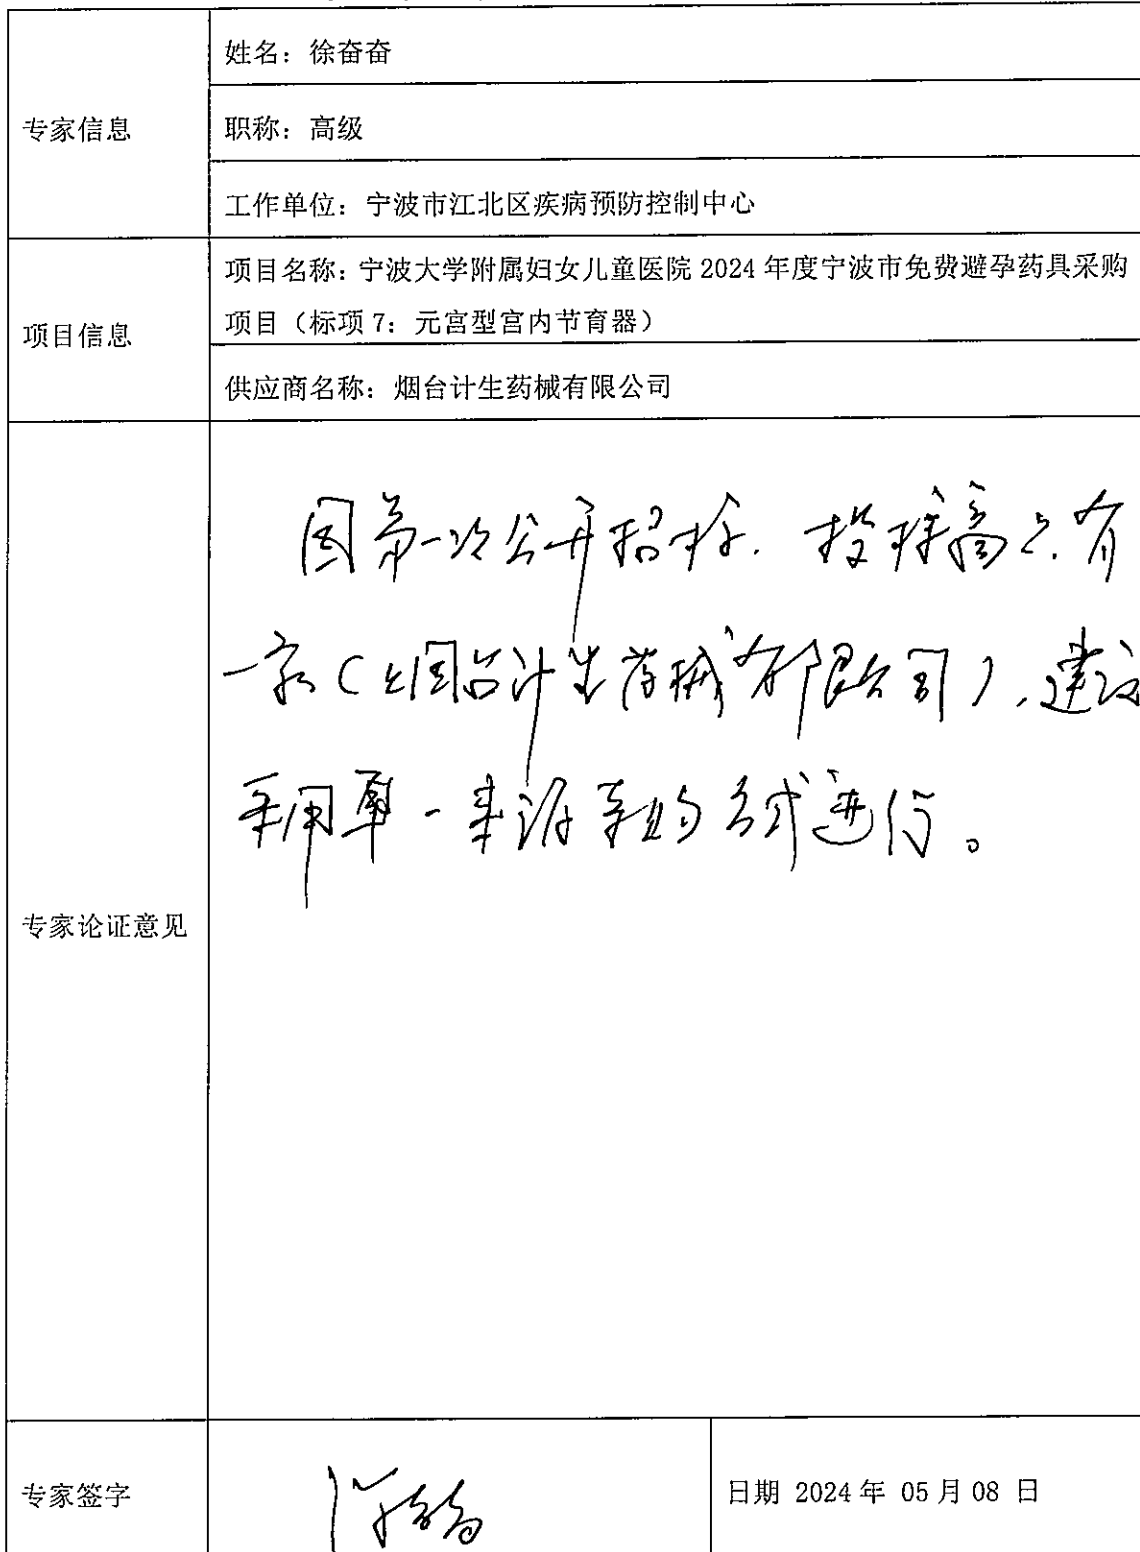 专家信息
姓名：徐奋奋
职称：高级
工作单位：宁波市江北区疾病预防控制中心
项目信息
项目名称：宁波大学附属妇女儿童医院 2024 年度宁波市免费避孕药具采购
项目（标项 7：元宫型宫内节育器）
供应商名称：烟台计生药械有限公司
专家论证意见
因第一次公开招标，投标商只有
一家（烟台计生药械有限公司），建议
采用单一来源采购方式进行。
专家签字
徐奋奋
日期 2024 年 05 月 08 日